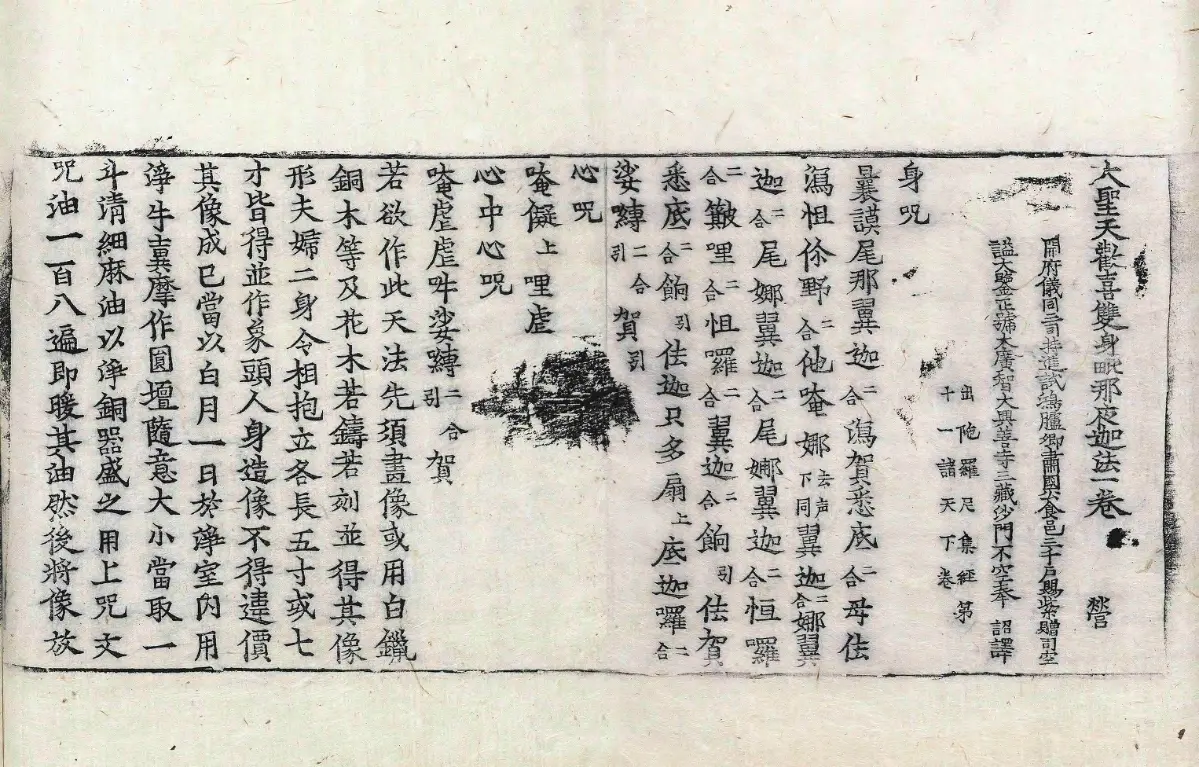 大聖天歡喜雙身毗那夜迦法一卷 營
開府儀同三司特進試鴻臚卿肅國公食邑三千戶賜紫贈司空
謚大鑒正號大廣智大興善寺三藏沙門不空奉 詔譯
出陁羅尼集經第
十一諸天下卷
身呪
曩謨尾那翼迦二合瀉賀悉底二合母佉
瀉怛你野二合他唵娜去声下同翼迦二合娜翼
迦二合尾娜翼迦二合尾娜翼迦二合怛囉
二合簸哩二合怛囉二合翼迦二合餉引佉賀
悉底二合餉引佉迦只多扇上底迦囉二合
娑嚩二合引賀引
心呪
唵儗上哩虐
心中心呪
唵虐虐吽娑嚩二合引賀
若欲作此天法先須畫像或用白鑞
銅木等及花木若鑄若刻並得其像
形夫婦二身令相抱立各長五寸或七
寸皆得並作象頭人身造像不得違價
其像成已當以白月一日於淨室內用
淨牛糞摩作圓壇隨意大小當取一
斗清細麻油以淨銅器盛之用上呪文
呪油一百八遍即暖其油然後將像放